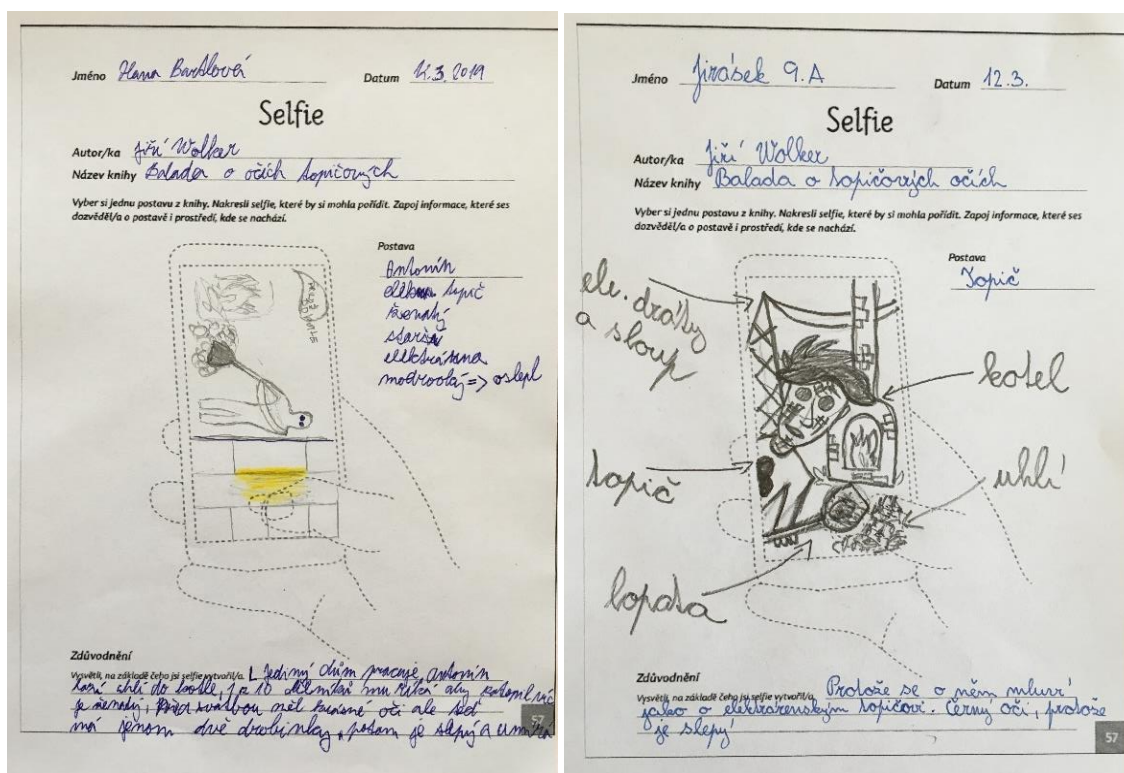 Jméno Hana Bartlová Datum 12.3.2019
Selfie
Autor/ka Jiří Wolker
Název knihy Balada o očích topičových
Vyber si jednu postavu z knihy. Nakresli selfie, které by si mohla pořídit. Zapoj informace, které ses
dozvěděl/a o postavě i prostředí, kde se nachází.
Postava
Antonín
topič
ženatý
starší
elektrárna
modrooký => oslepl
Zdůvodnění
Vysvětli, na základě čeho jsi selfie vytvořil/a. 1 jediný dům pracuje, Antonín
hází uhlí do kotle, 1 z 10 dělníků mu říká aby
je ženatý, svatbou měl krásné oči ale teď
má jenom dvě drobinky, potom je slepý a umírá
57
Jméno Jirásek 9.A Datum 12.3.
Selfie
Autor/ka Jiří Wolker
Název knihy Balada o topičových očích
Vyber si jednu postavu z knihy. Nakresli selfie, které by si mohla pořídit. Zapoj informace, které ses
dozvěděl/a o postavě i prostředí, kde se nachází.
Postava
Topič
ele. dráty
a sloup
kotel
topič
uhlí
lopata
Zdůvodnění
Vysvětli, na základě čeho jsi selfie vytvořil/a. Protože se o něm mluví
jako o elektrárenským topičovi. Černý oči, protože
je slepý
57